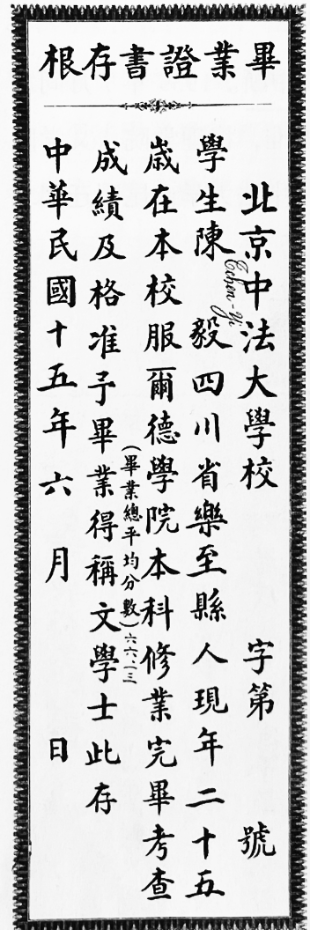 畢業證書存根
北京中法大學校 字第 號
學生陳毅四川省樂至縣人現年二十五
Tchen-Yi
歲在本校服爾德學院本科修業完畢考查
(畢業總平均分數)六六、一三
成績及格准予畢業得稱文學士此存
中華民國十五年六 月 日